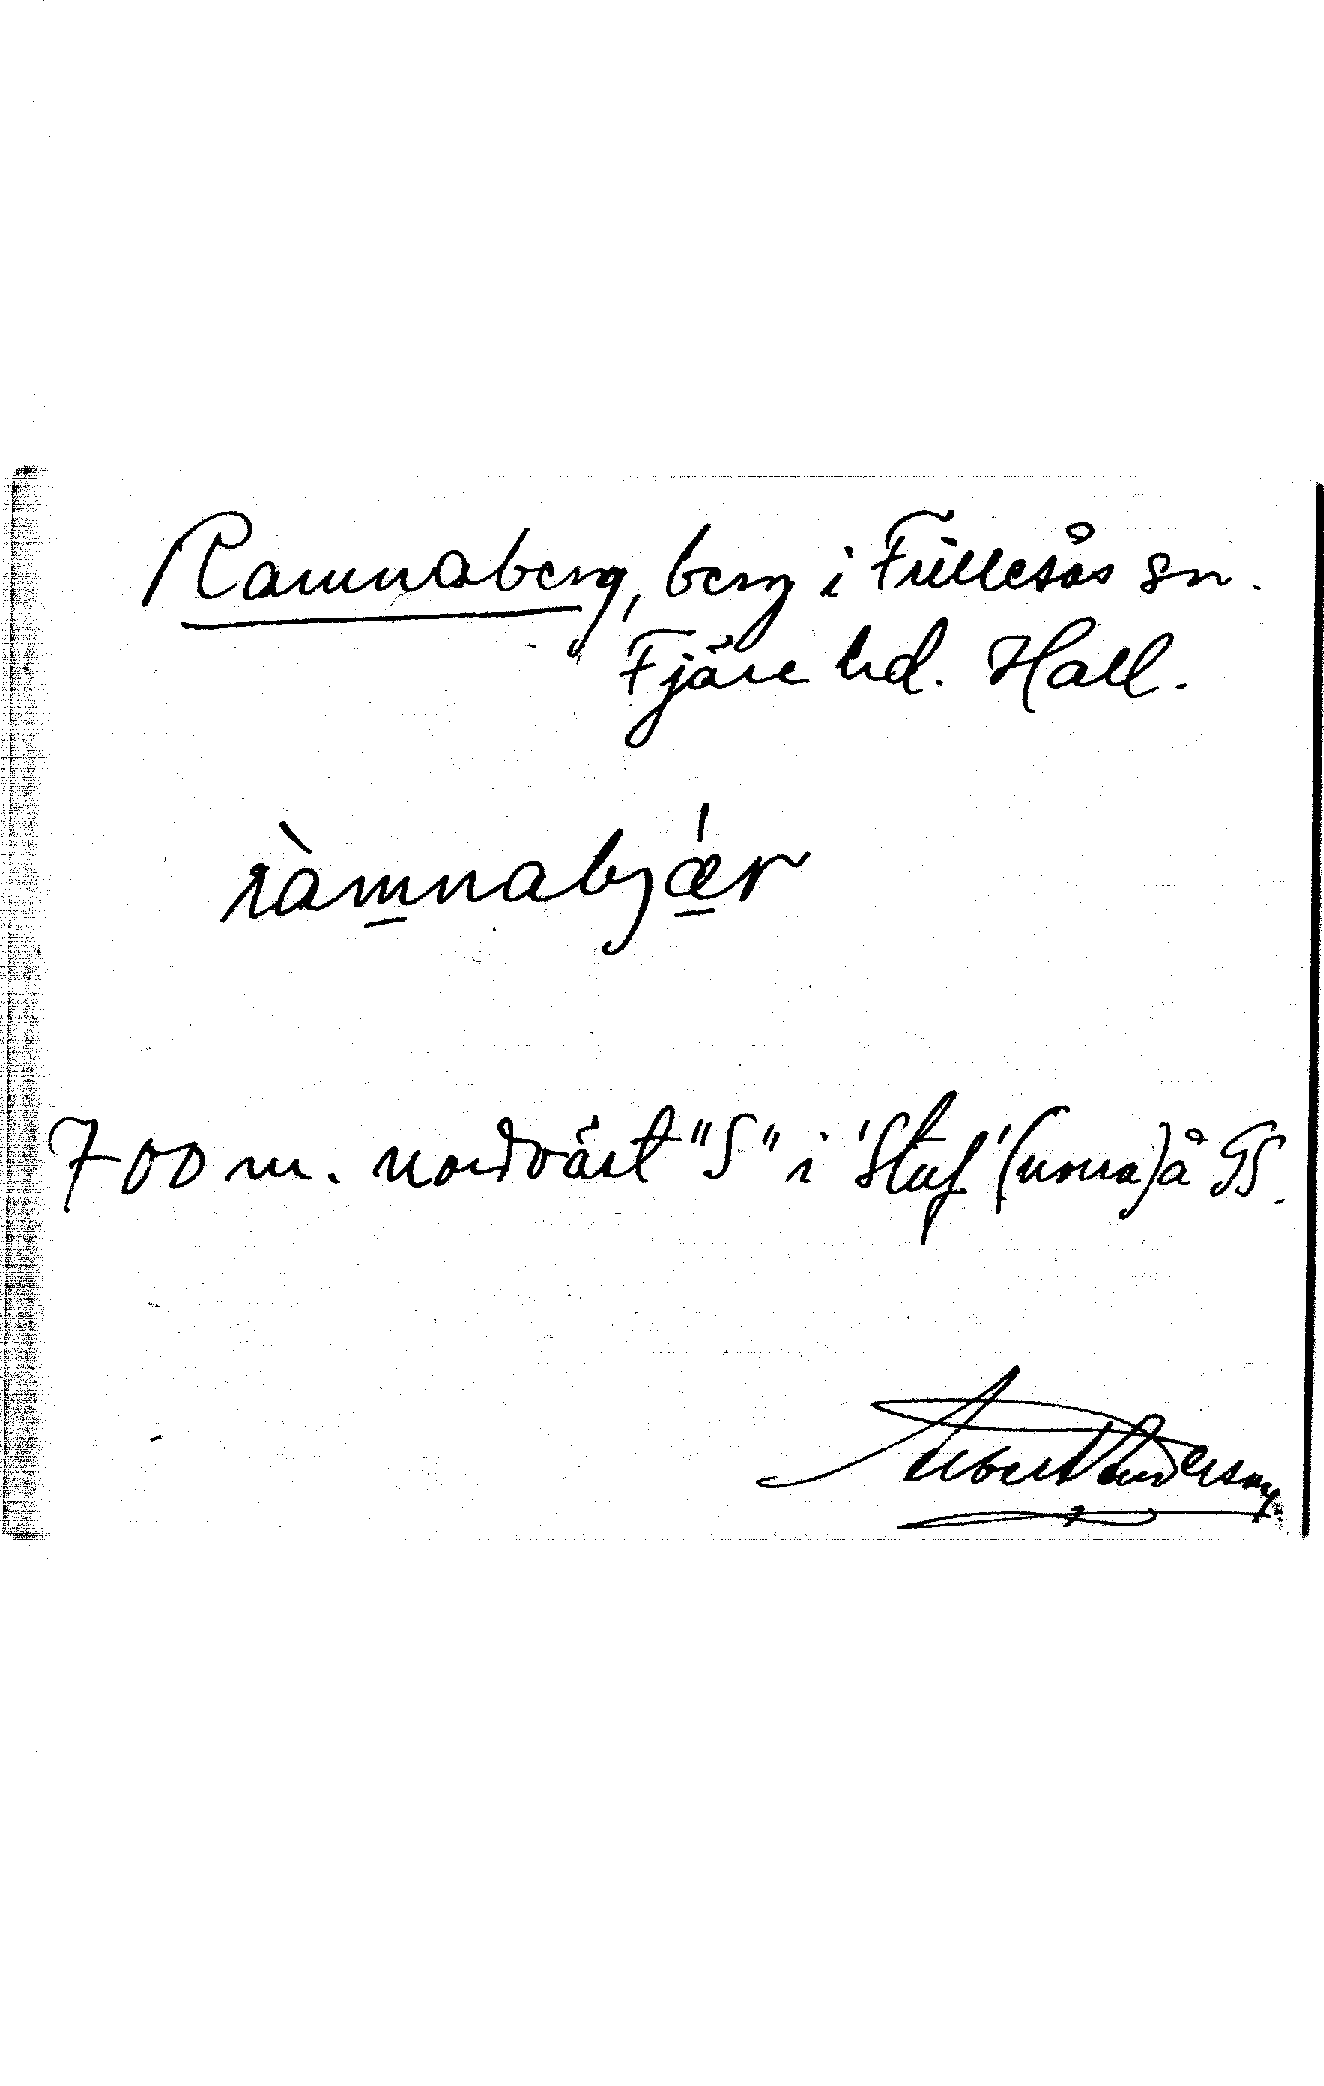 Ramnaberg, berg i Frillesås sn.
Fjäre hd. Hall.
ràmnabjǽr
700 m. nordväst "S" i 'Stuf' (norra) å GS.
Albert Anderson